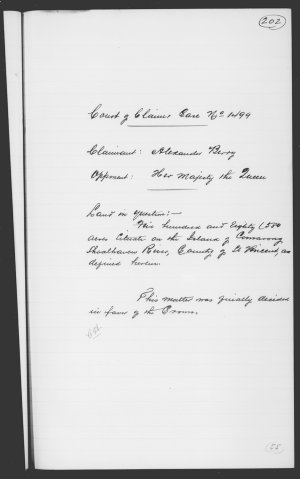 202
Court of Claims Case No 1499
Claimant: Alexander Berry
Opponent: Her Majesty the Queen
Land in question:—
Six hundred and Eighty (680
acres situate on the Island of Comarong
Shoalhaven River, County of St Vincent, as
defined herein.
This matter was finally decided
in favor of the Crown.
(55)